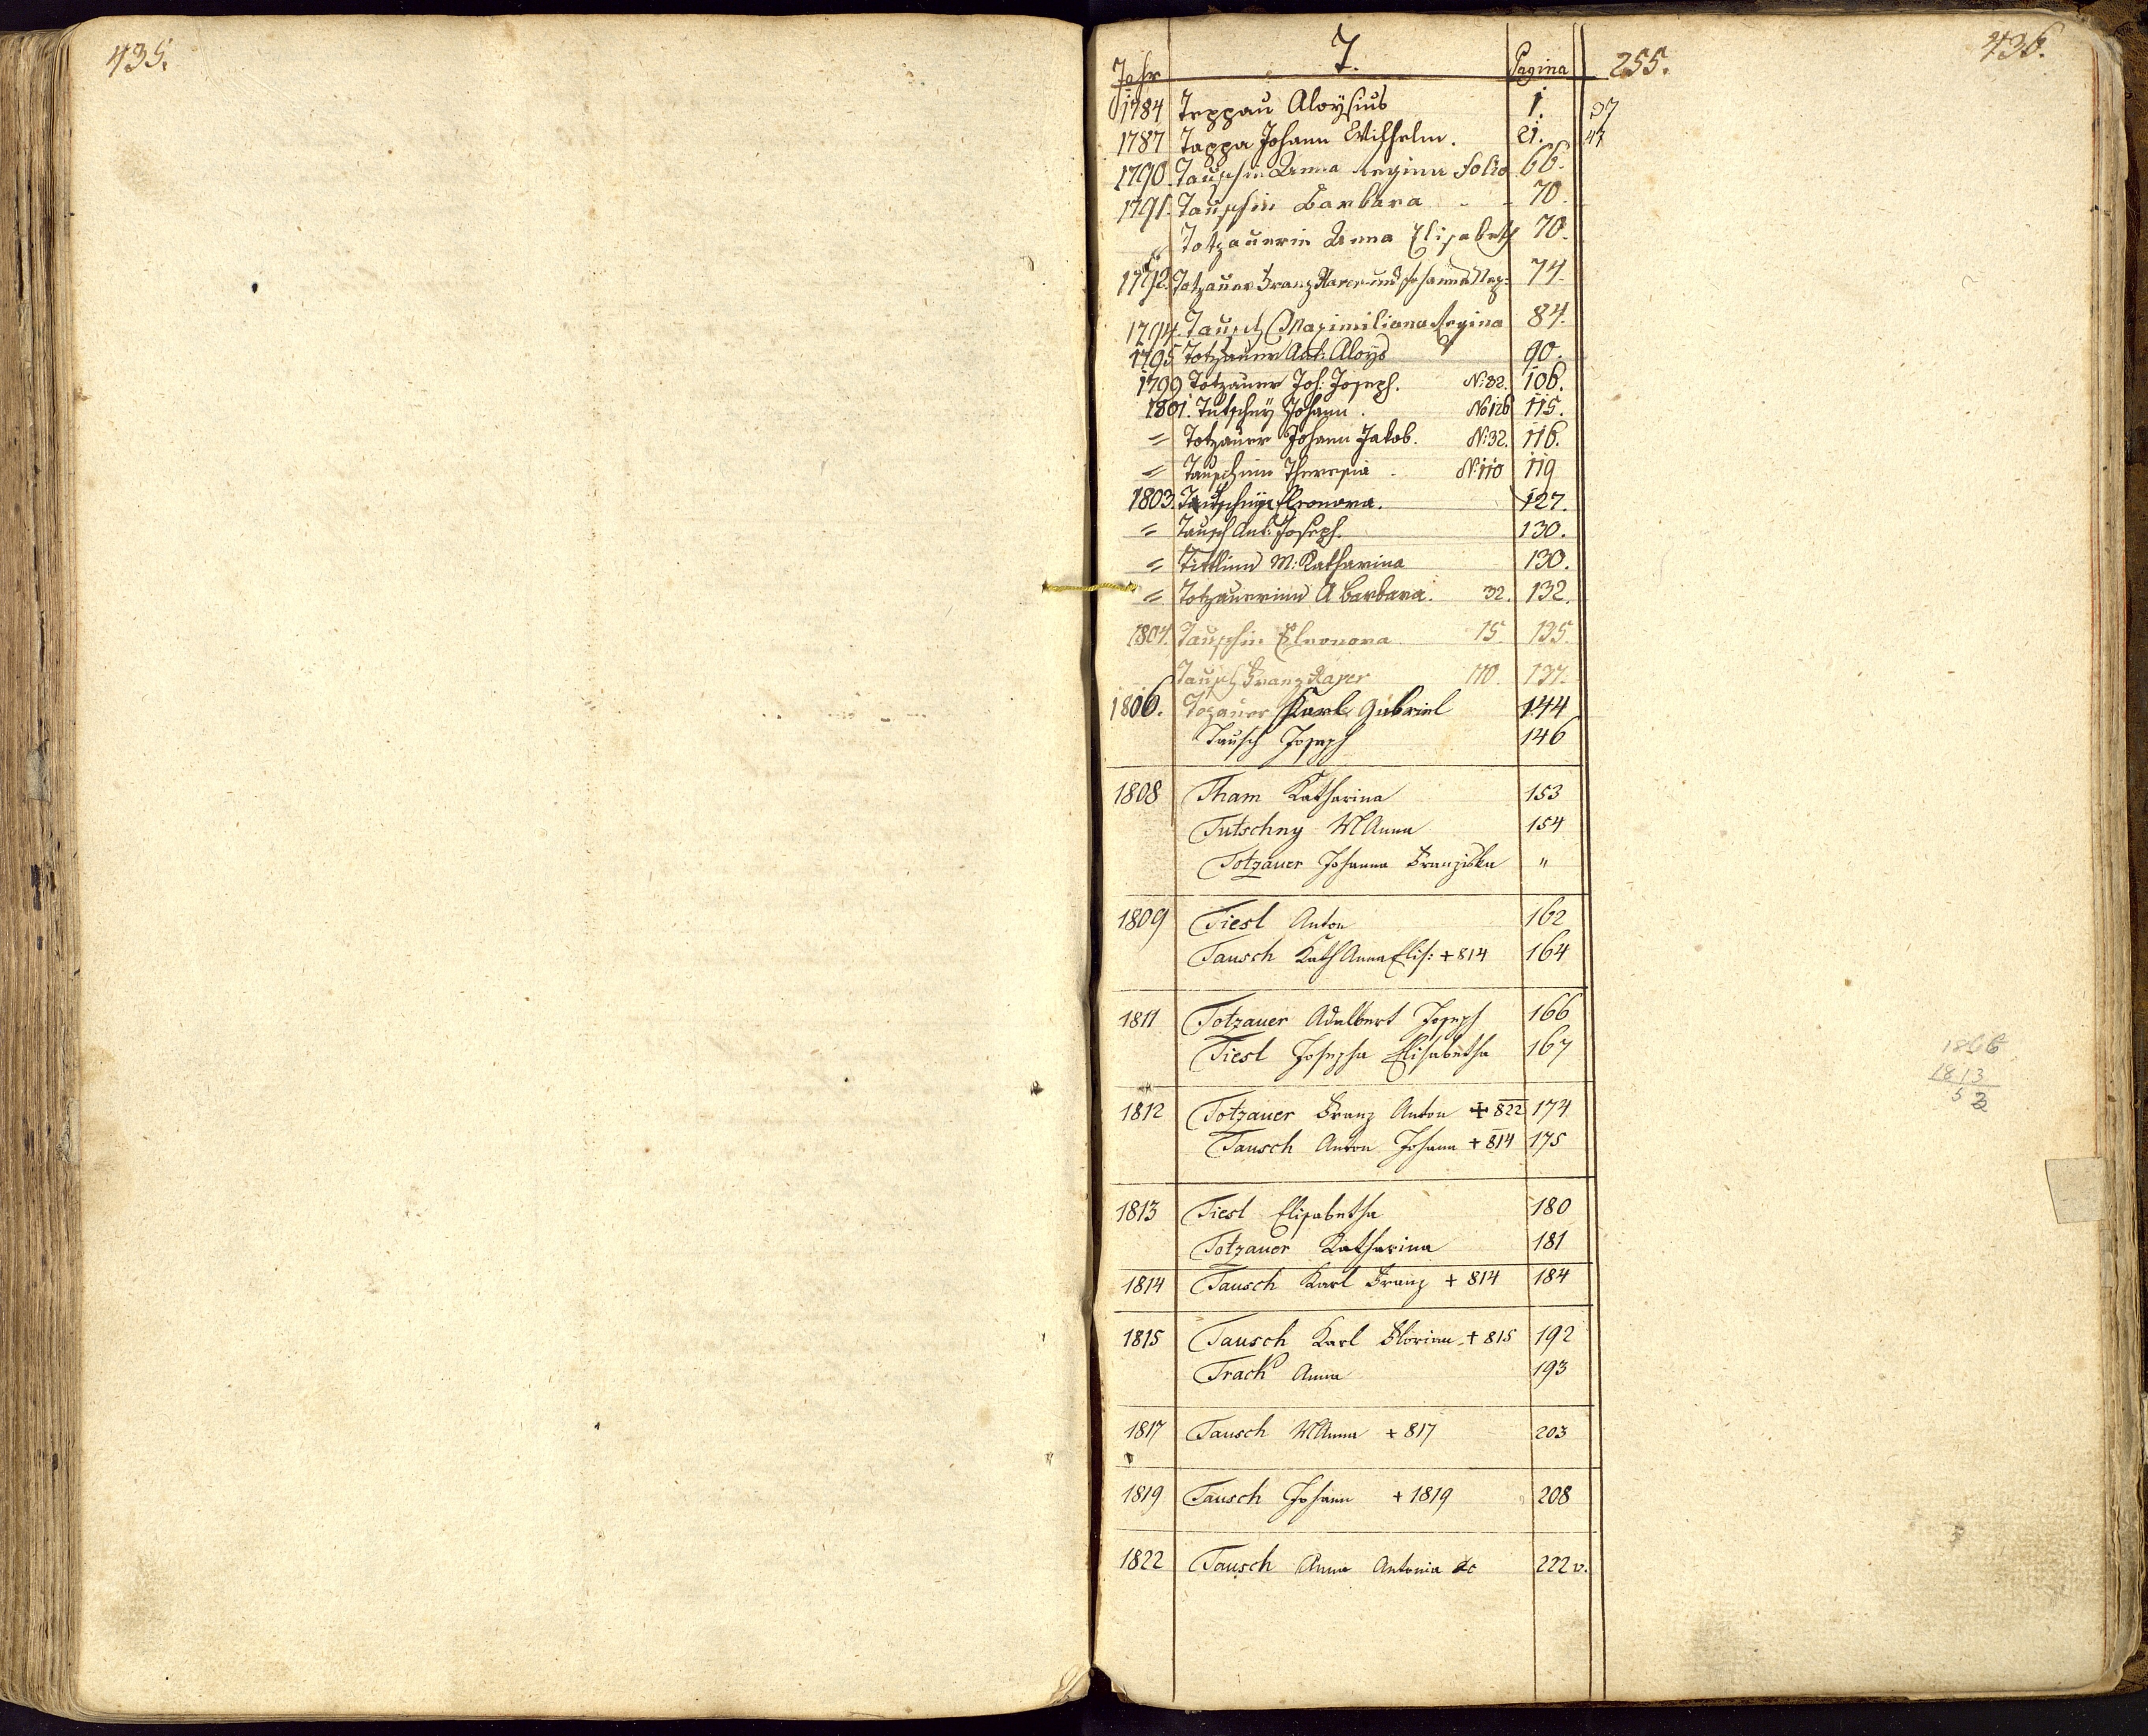 435.
436.
T.
Jahr Pagina 255.
1784 Teppau Aloysius 1. 37
1787 Tappa Johann Wilhelm. 21. 47
1790. Tauschin Anna Regina Folio 66.
1791. Tauschin Barbara - - 70.
" Totzauerin Anna Elisabeth 70.
1792. Totzauer Franz Xaver und Johann Nep: 74.
1794. Tausch Maximiliana Regina 84.
1795 Totzauer Ant: Aloys 90.
1799 Totzauer Joh: Joseph. N: 32. 106.
1801. Tutschny Johann. No 126 115.
= Totzauer Johann Jakob. N: 32. 116.
= Tauschinn Theresia. N: 110 119
1803. Tutschny Eleonora. 127.
= Tausch Ant: Joseph. 130.
= Tittlinn M: Katharina 130.
= Totzauerinn A Barbara. 32. 132.
1804. Tauschin Eleonora 15. 135.
Tausch Franz Xaver 110. 137.
1806. Tozauer Karl Gabriel 144
Tausch Joseph 146
1808 Tham Katharina 153
Tutschny M Anna 154
Totzauer Johanna Franziska "
1809 Tiesl Anton 162
Tausch Kath Anna Elis: + 814 164
1811 Totzauer Adalbert Joseph 166
Tiesl Josepha Elisabetha 167
1866
1813
53
1812 Totzauer Franz Anton + 822 174
Tausch Anton Johann + 814 175
1813 Tiesl Elisabetha 180
Totzauer Katharina 181
1814 Tausch Karl Franz + 814 184
1815 Tausch Karl Florian + 815 192
Track Anna 193
1817 Tausch M Anna + 817 203
1819 Tausch Johann + 1819 208
1822 Tausch Anna Antonia &c 222 v.